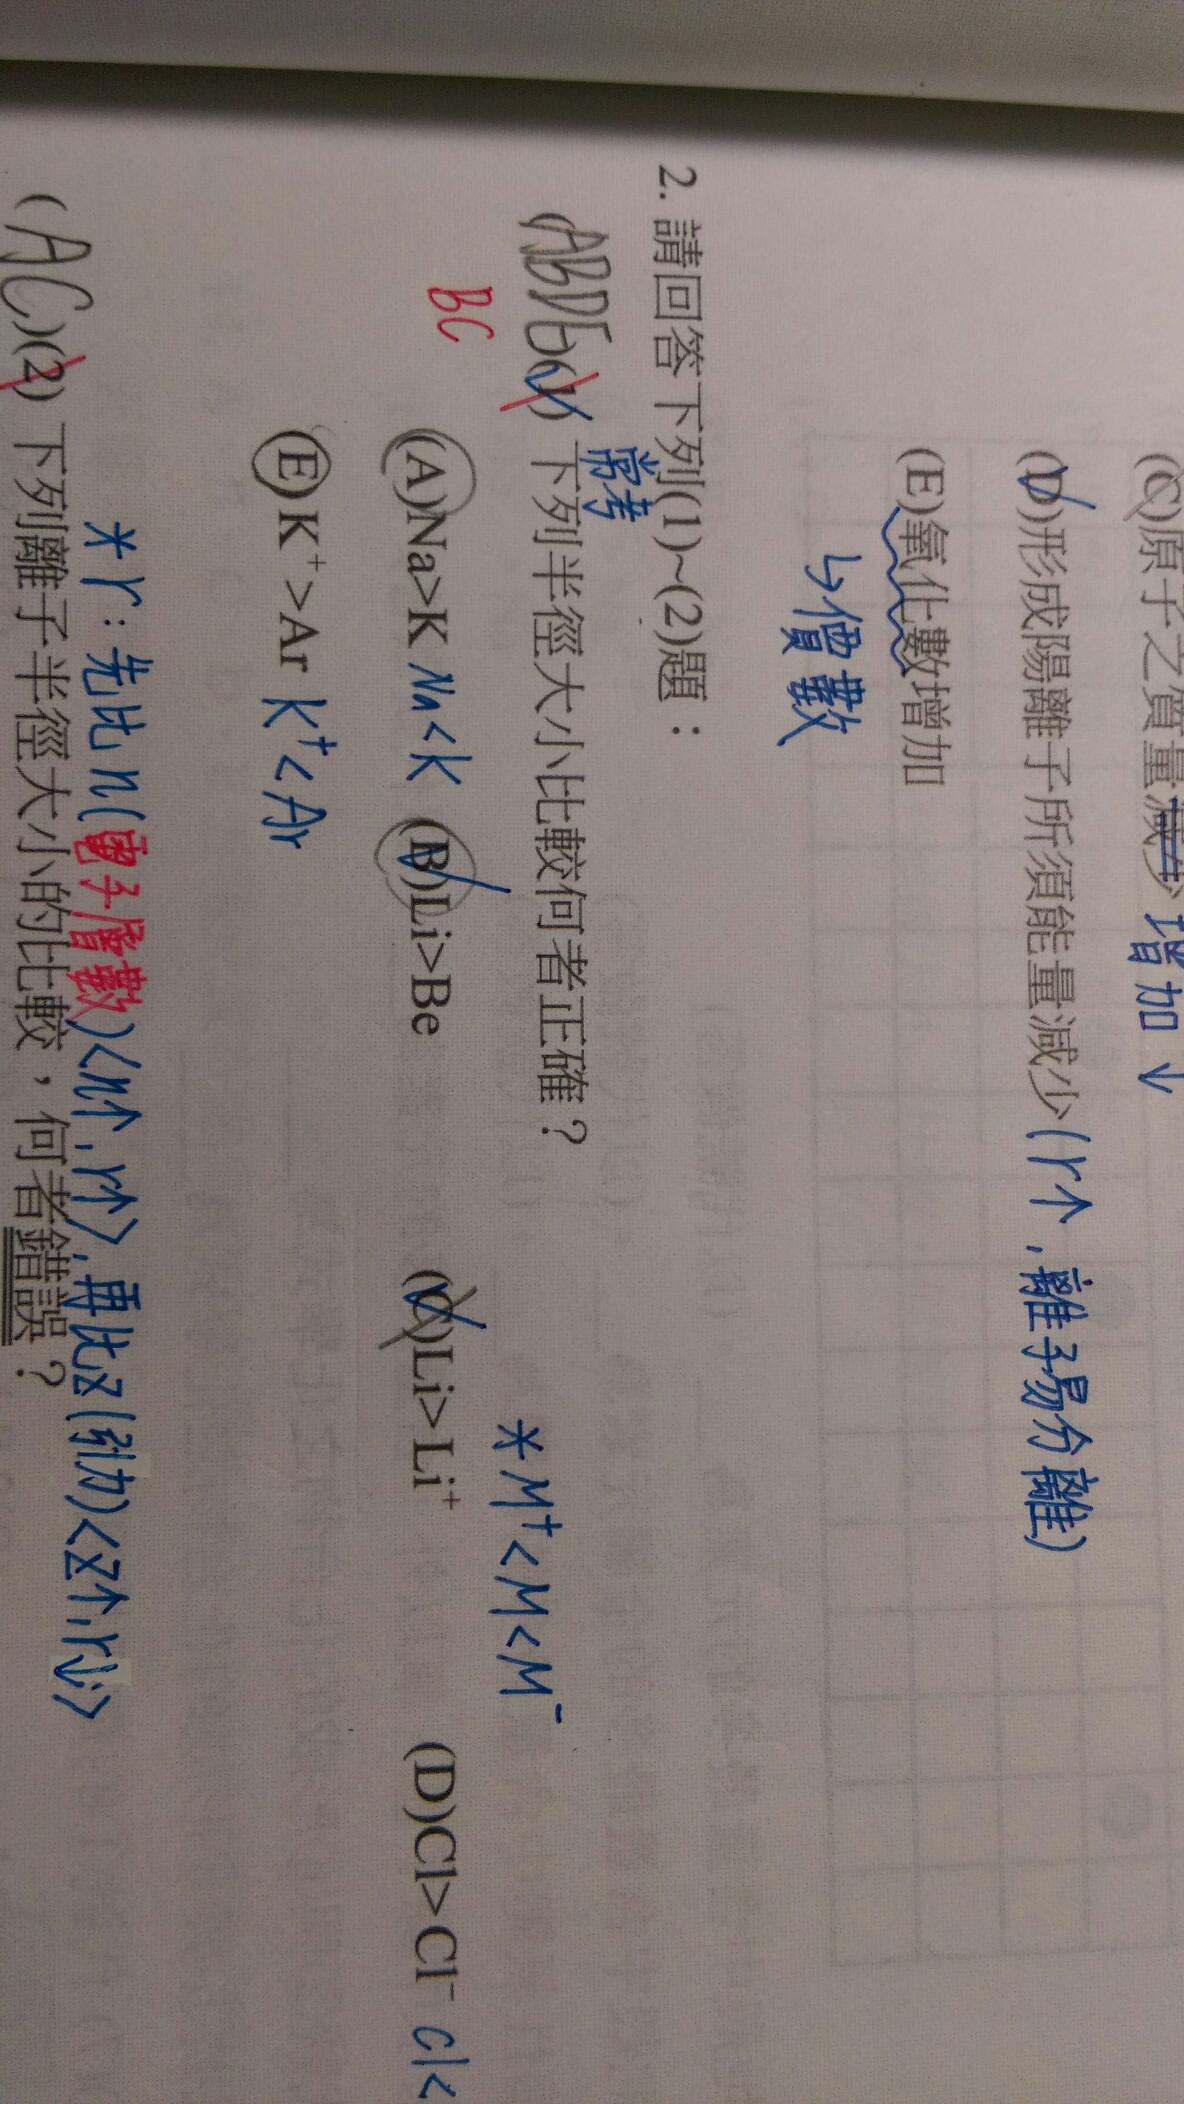 (C)原子之質量減少 增加↓
(D)形成陽離子所須能量減少(r↑,離子易分離)
(E)氧化數增加
↳價數
2. 請回答下列(1)~(2)題：
常考
(ABDE)(1) 下列半徑大小比較何者正確？
BC
*M⁺<M<M⁻
(A)Na>K Na<K (B)Li>Be (C)Li>Li⁺ (D)Cl>Cl⁻ Cl<
(E)K⁺>Ar K⁺<Ar
*r:先比n(電子層數)<n↑,r↑>,再比Z(引力)<Z↑,r↓>
(AC)(2) 下列離子半徑大小的比較，何者錯誤？